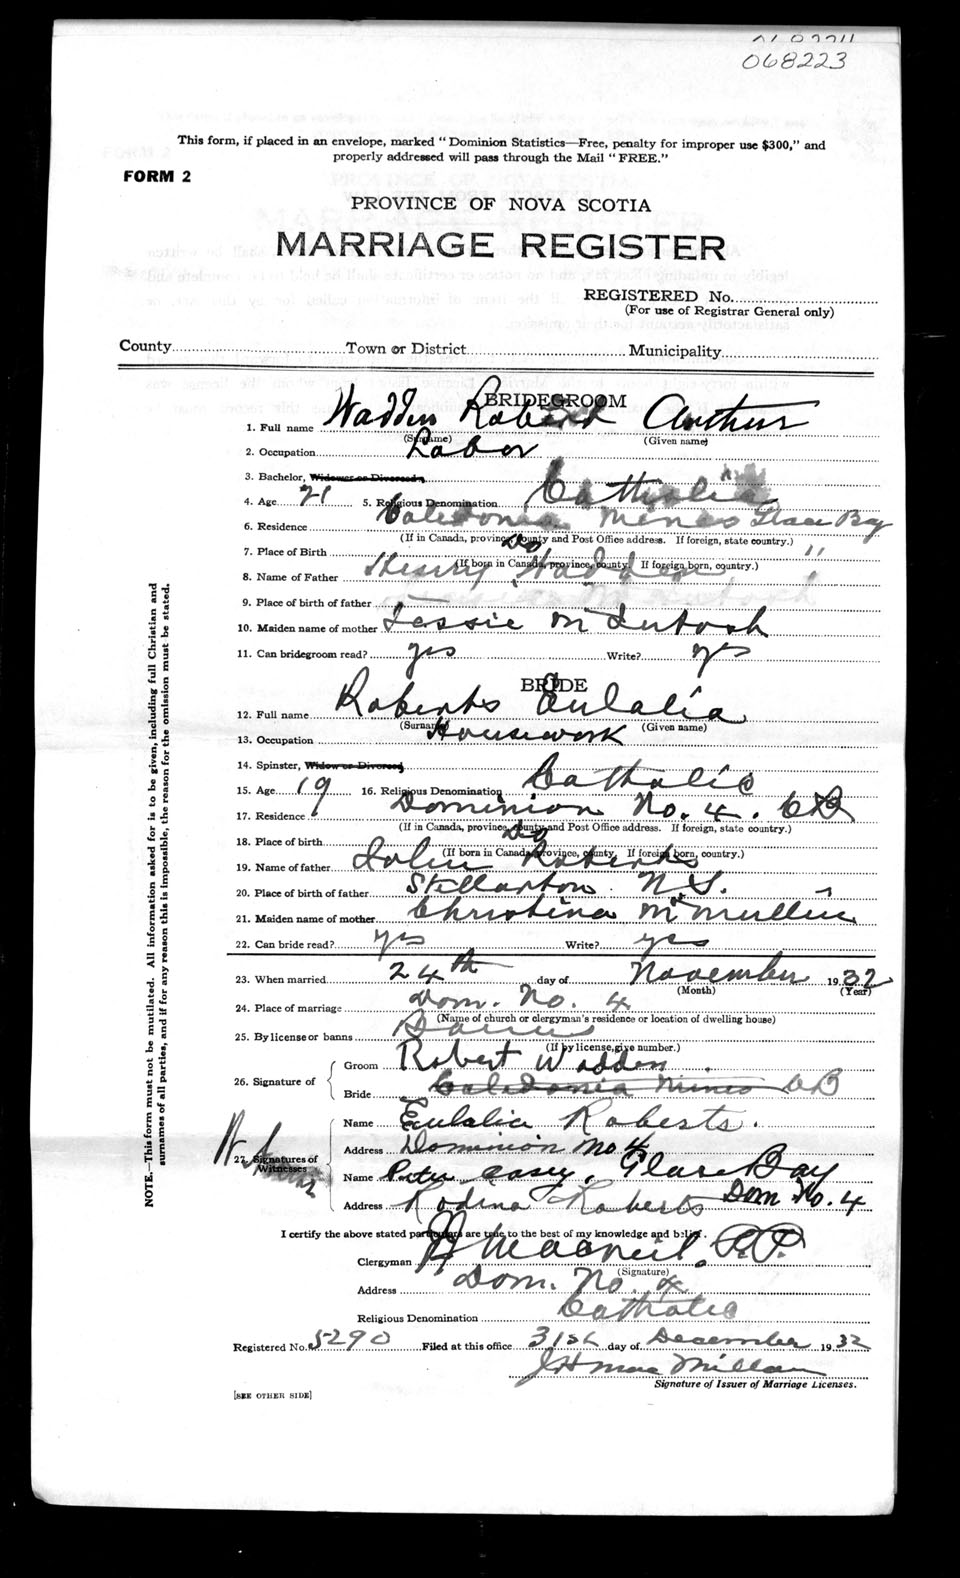 068223
This form, if placed in an envelope, marked "Dominion Statistics—Free, penalty for improper use $300," and
properly addressed will pass through the Mail "FREE."
FORM 2
PROVINCE OF NOVA SCOTIA
MARRIAGE REGISTER
REGISTERED No.
(For use of Registrar General only)
County Town or District Municipality
BRIDEGROOM
1. Full name Wadden Robert Arthur
(Surname) (Given name)
2. Occupation Labor
3. Bachelor, Widower or Divorced
4. Age 21 5. Religious Denomination Catholic
6. Residence Caledonia Mines Glace Bay
(If in Canada, province, county and Post Office address. If foreign, state country.)
7. Place of Birth Do "
(If born in Canada, province, county. If foreign born, country.)
8. Name of Father Henry Wadden "
9. Place of birth of father
10. Maiden name of mother Jessie McIntosh
11. Can bridegroom read? yes Write? yes
BRIDE
12. Full name Roberts Eulalia
(Surname) (Given name)
13. Occupation Housework
14. Spinster, Widow or Divorced
15. Age 19 16. Religious Denomination Catholic
17. Residence Dominion No. 4. CB
(If in Canada, province, county and Post Office address. If foreign, state country.)
18. Place of birth Do
(If born in Canada, province, county. If foreign born, country.)
19. Name of father John Roberts
20. Place of birth of father Stellarton N.S.
21. Maiden name of mother Christina McMullin
22. Can bride read? yes Write? yes
23. When married 24th day of November 1932
(Month) (Year)
24. Place of marriage Dom. No. 4
(Name of church or clergyman's residence or location of dwelling house)
25. By license or banns Banns
(If by license, give number.)
26. Signature of Groom Robert Wadden
Bride Caledonia Mines CB
27. Signatures of Witnesses
Name Eulalia Roberts.
Address Dominion No 4
Name Peter Casey, Glace Bay
Address Rodena Roberts Dom No. 4
I certify the above stated particulars are true to the best of my knowledge and belief.
Clergyman MacNeil. P.P.
(Signature)
Address Dom. No. 4
Religious Denomination Catholic
Registered No. 5290 Filed at this office 31st day of December 1932
J H MacMillan
Signature of Issuer of Marriage Licenses.
[SEE OTHER SIDE]
NOTE.—This form must not be mutilated. All information asked for is to be given, including full Christian and
surnames of all parties, and if for any reason this is impossible, the reason for the omission must be stated.